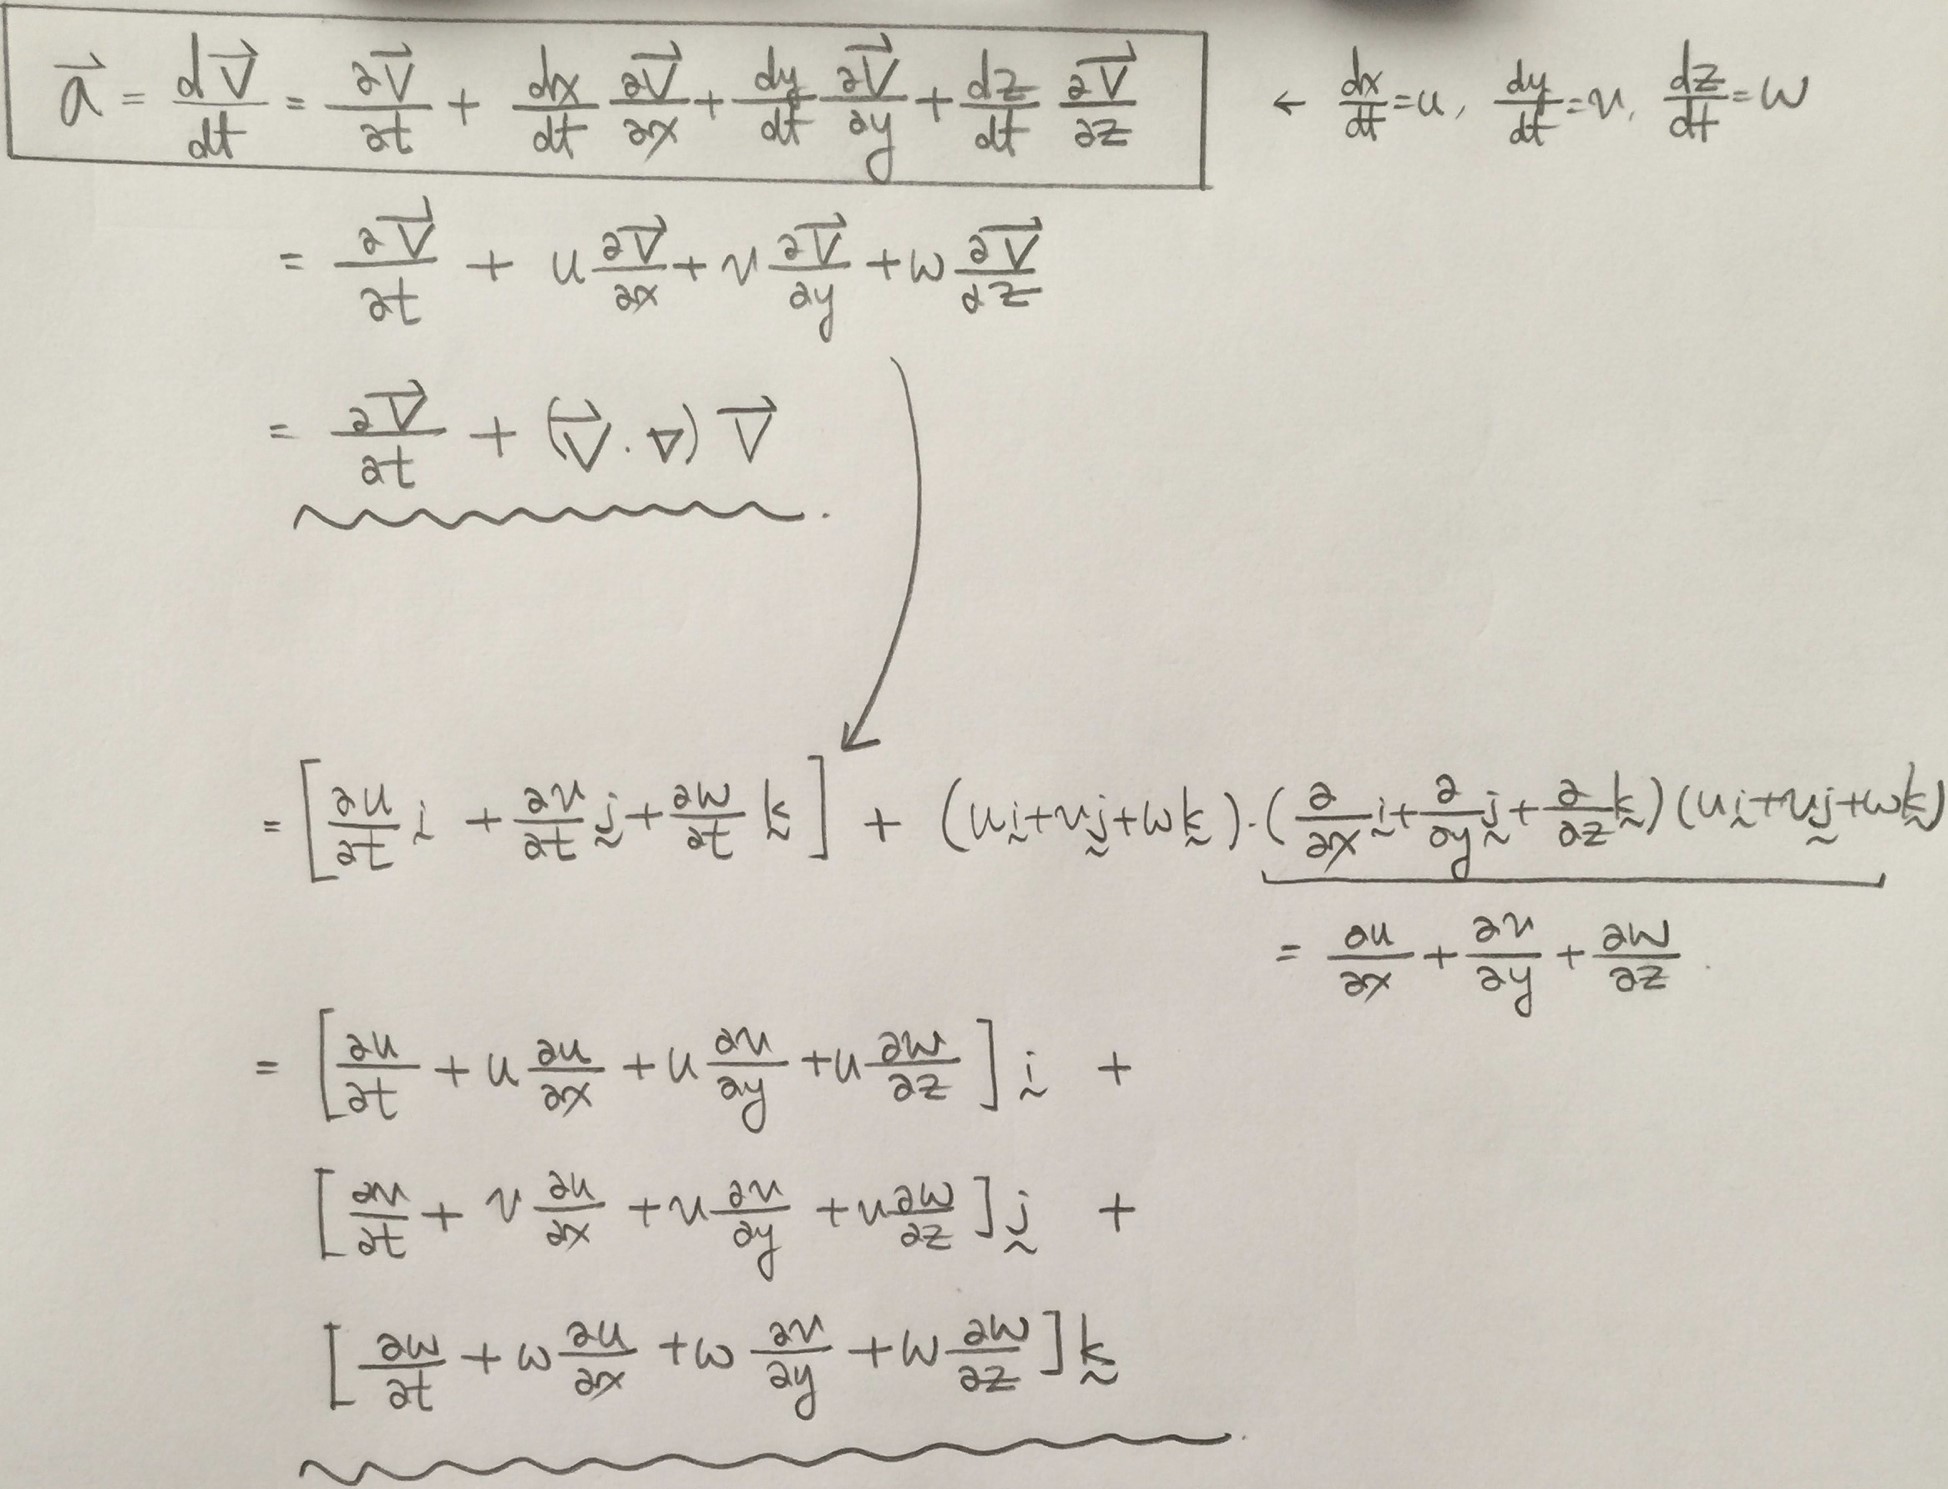 a⃗ = dV⃗/dt = ∂V⃗/∂t + dx/dt ∂V⃗/∂x + dy/dt ∂V⃗/∂y + dz/dt ∂V⃗/∂z ← dx/dt = u, dy/dt = v, dz/dt = w
= ∂V⃗/∂t + u ∂V⃗/∂x + v ∂V⃗/∂y + w ∂V⃗/∂z
= ∂V⃗/∂t + (V⃗ · ∇) V⃗ .
= [∂u/∂t i + ∂v/∂t j + ∂w/∂t k] + (ui + vj + wk) · (∂/∂x i + ∂/∂y j + ∂/∂z k)(ui + vj + wk)
= ∂u/∂x + ∂v/∂y + ∂w/∂z .
= [∂u/∂t + u ∂u/∂x + u ∂v/∂y + u ∂w/∂z] i +
[∂v/∂t + v ∂u/∂x + v ∂v/∂y + v ∂w/∂z] j +
[∂w/∂t + w ∂u/∂x + w ∂v/∂y + w ∂w/∂z] k .